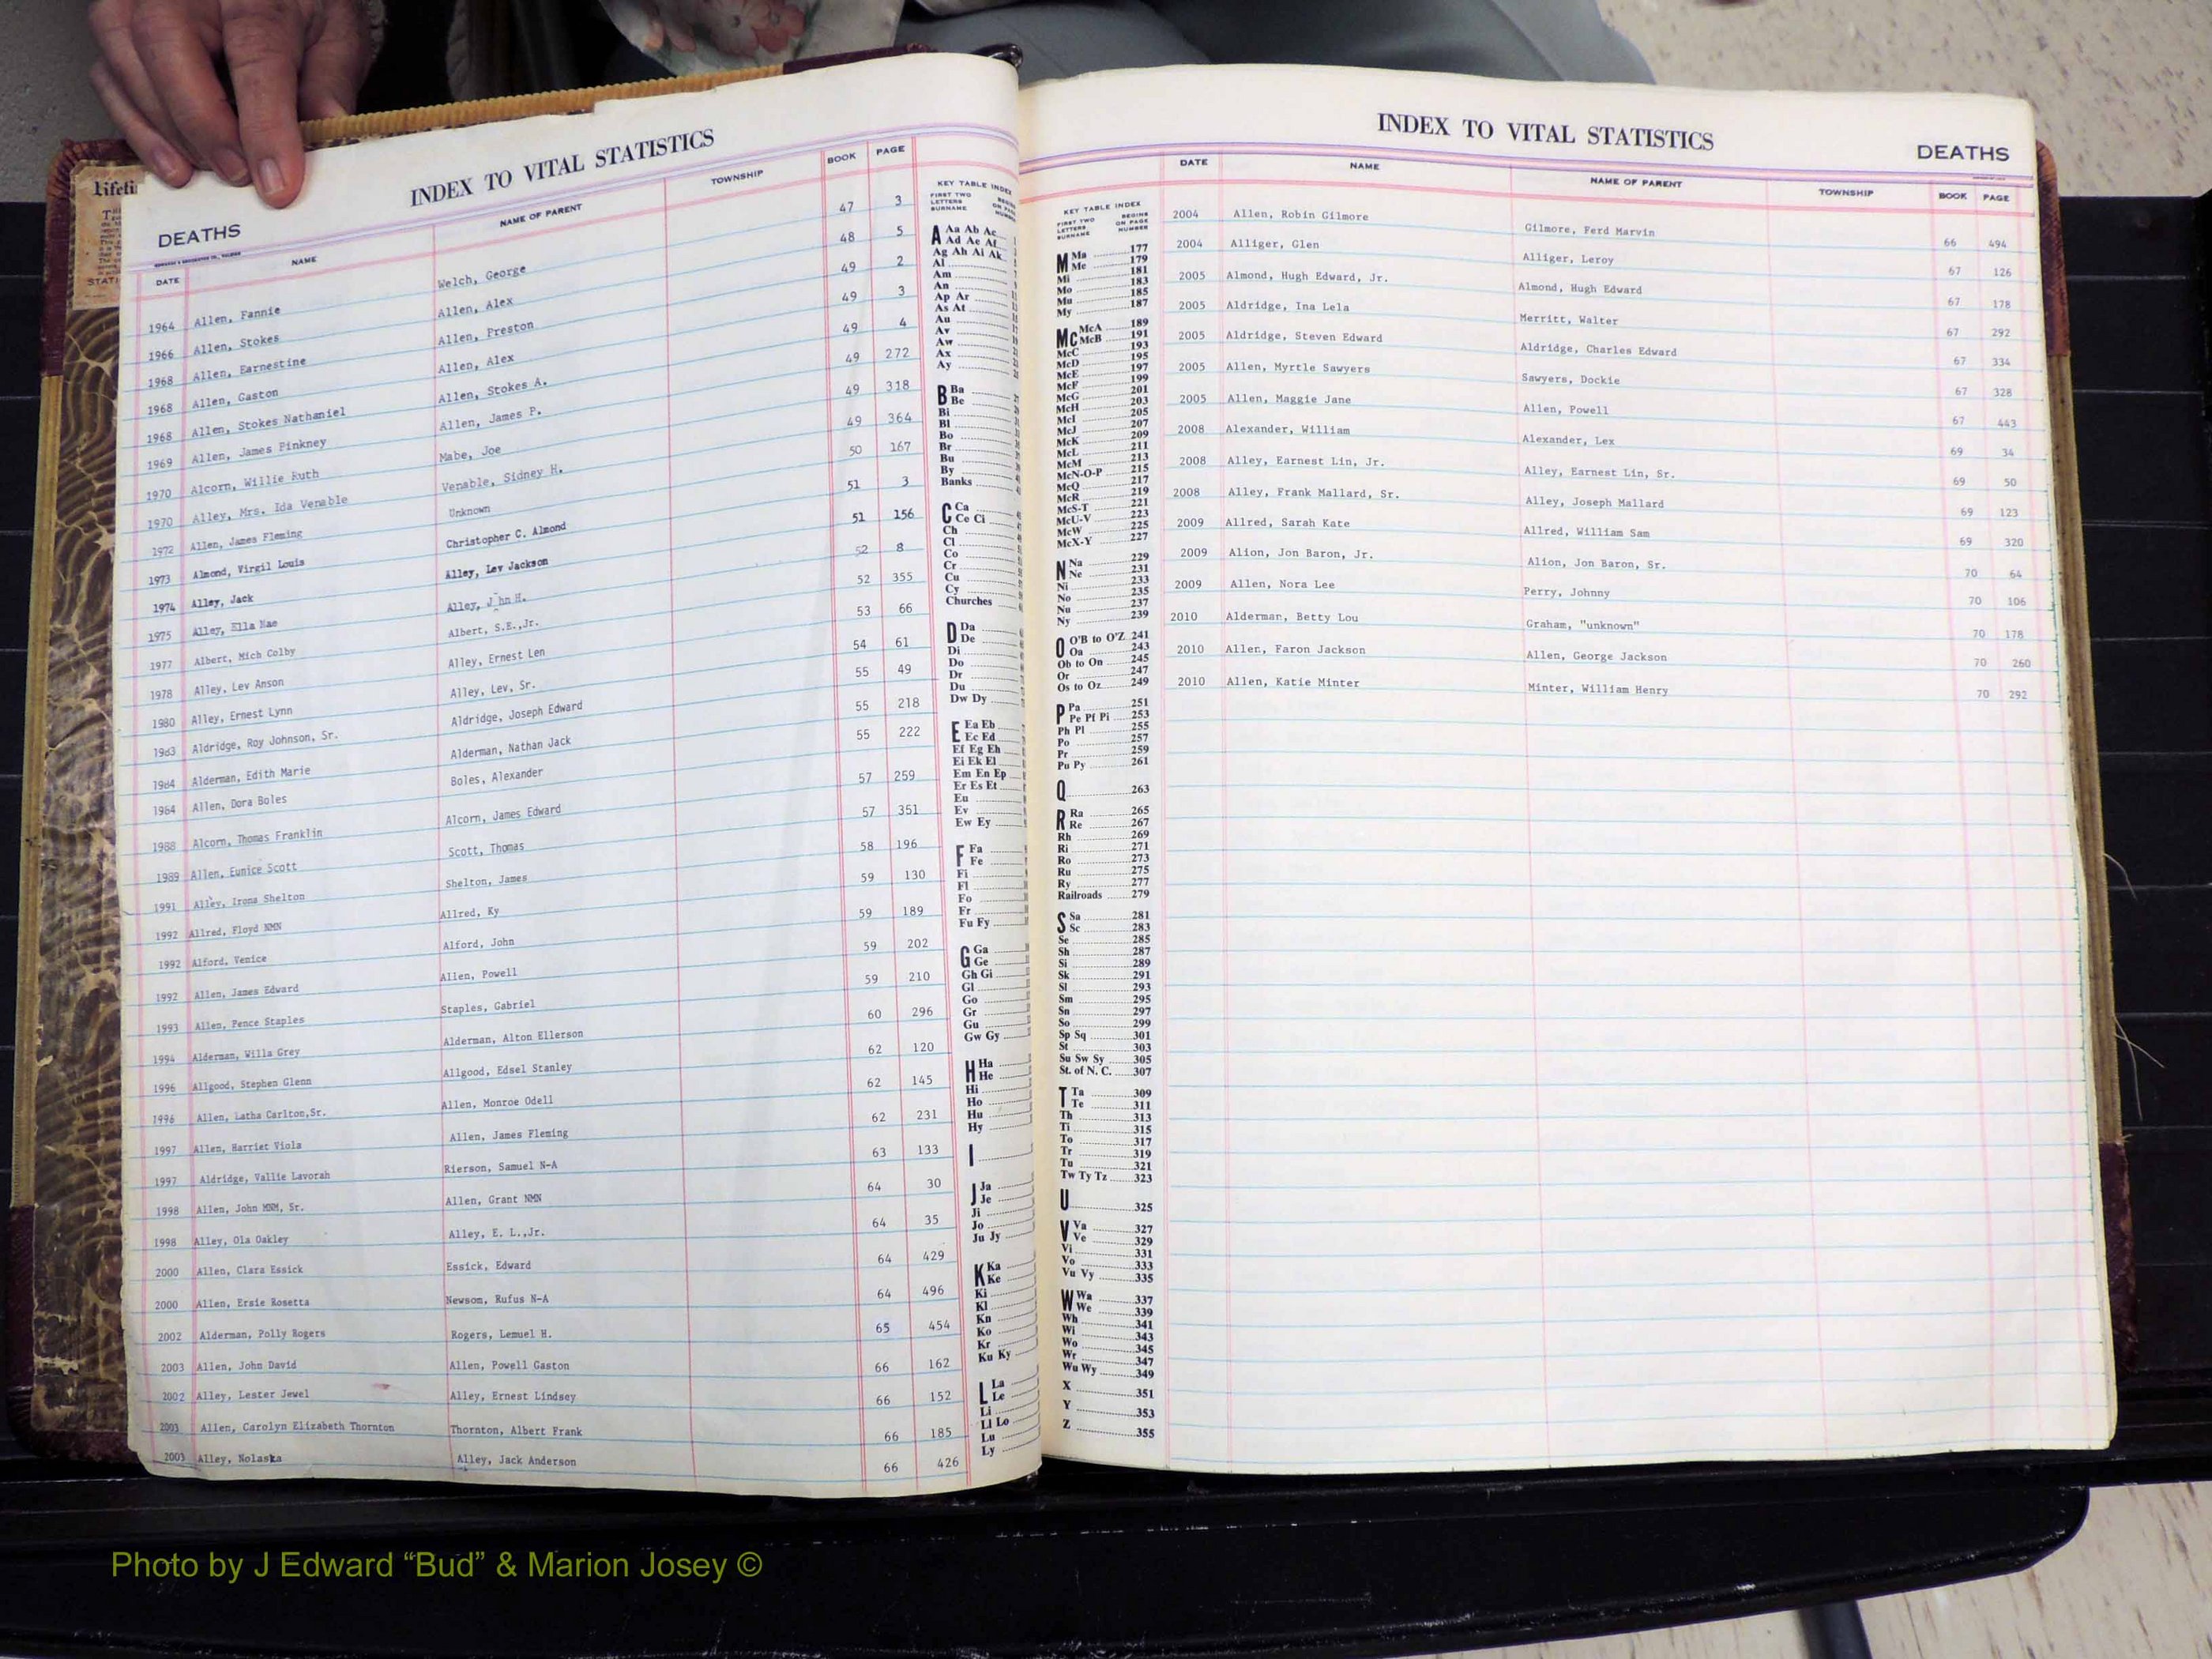 INDEX TO VITAL STATISTICS
DEATHS
DATE NAME NAME OF PARENT TOWNSHIP BOOK PAGE
1964 Allen, Fannie Welch, George 47 3
1966 Allen, Stokes Allen, Alex 48 5
1968 Allen, Earnestine Allen, Preston 49 2
1968 Allen, Gaston Allen, Alex 49 3
1968 Allen, Stokes Nathaniel Allen, Stokes A. 49 4
1969 Allen, James Pinkney Allen, James P. 49 272
1970 Alcorn, Willie Ruth Mabe, Joe 49 318
1970 Alley, Mrs. Ida Venable Venable, Sidney H. 49 364
1972 Allen, James Fleming Unknown 50 167
1973 Almond, Virgil Louis Christopher C. Almond 51 3
1974 Alley, Jack Alley, Lev Jackson 51 156
1975 Alley, Ella Mae Alley, J hn H. 52 8
1977 Albert, Mich Colby Albert, S.E.,Jr. 52 355
1978 Alley, Lev Anson Alley, Ernest Len 53 66
1980 Alley, Ernest Lynn Alley, Lev, Sr. 54 61
1983 Aldridge, Roy Johnson, Sr. Aldridge, Joseph Edward 55 49
1984 Alderman, Edith Marie Alderman, Nathan Jack 55 218
1984 Allen, Dora Boles Boles, Alexander 55 222
1988 Alcorn, Thomas Franklin Alcorn, James Edward 57 259
1989 Allen, Eunice Scott Scott, Thomas 57 351
1991 Alley, Irona Shelton Shelton, James 58 196
1992 Allred, Floyd NMN Allred, Ky 59 130
1992 Alford, Venice Alford, John 59 189
1992 Allen, James Edward Allen, Powell 59 202
1993 Allen, Pence Staples Staples, Gabriel 59 210
1994 Alderman, Willa Grey Alderman, Alton Ellerson 60 296
1996 Allgood, Stephen Glenn Allgood, Edsel Stanley 62 120
1996 Allen, Latha Carlton,Sr. Allen, Monroe Odell 62 145
1997 Allen, Harriet Viola Allen, James Fleming 62 231
1997 Aldridge, Vallie Lavorah Rierson, Samuel N-A 63 133
1998 Allen, John NMN, Sr. Allen, Grant NMN 64 30
1998 Alley, Ola Oakley Alley, E. L.,Jr. 64 35
2000 Allen, Clara Essick Essick, Edward 64 429
2000 Allen, Ersie Rosetta Newsom, Rufus N-A 64 496
2002 Alderman, Polly Rogers Rogers, Lemuel H. 65 454
2003 Allen, John David Allen, Powell Gaston 66 162
2002 Alley, Lester Jewel Alley, Ernest Lindsey 66 152
2003 Allen, Carolyn Elizabeth Thornton Thornton, Albert Frank 66 185
2003 Alley, Nolaska Alley, Jack Anderson 66 426
KEY TABLE INDEX
FIRST TWO LETTERS SURNAME
A Aa Ab Ac
Ad Ae Af
Ag Ah Ai Ak
Al
Am
An
Ap Ar
As At
Au
Av
Aw
Ax
Ay
B Ba
Be
Bi
Bl
Bo
Br
Bu
By
Banks
C Ca
Ce Ci
Ch
Cl
Co
Cr
Cu
Cy
Churches
D Da
De
Di
Do
Dr
Du
Dw Dy
E Ea Eb
Ec Ed
Ef Eg Eh
Ei Ek El
Em En Ep
Er Es Et
Eu
Ev
Ew Ey
F Fa
Fe
Fi
Fl
Fo
Fr
Fu Fy
G Ga
Ge
Gh Gi
Gl
Go
Gr
Gu
Gw Gy
H Ha
He
Hi
Ho
Hu
Hy
I
J Ja
Je
Ji
Jo
Ju Jy
K Ka
Ke
Ki
Kl
Kn
Ko
Kr
Ku Ky
L La
Le
Li
Ll Lo
Lu
Ly
INDEX TO VITAL STATISTICS
DEATHS
KEY TABLE INDEX
FIRST TWO LETTERS SURNAME BEGINS ON PAGE NUMBER
M Ma 177
Me 179
Mi 181
Mo 183
Mu 185
My 187
Mc McA 189
McB 191
McC 193
McD 195
McE 197
McF 199
McG 201
McH 203
McI 205
McJ 207
McK 209
McL 211
McM 213
McN-O-P 215
McQ 217
McR 219
McS-T 221
McU-V 223
McW 225
McX-Y 227
N Na 229
Ne 231
Ni 233
No 235
Nu 237
Ny 239
O O'B to O'Z 241
Oa 243
Ob to On 245
Or 247
Os to Oz 249
P Pa 251
Pe Pf Pi 253
Ph Pl 255
Po 257
Pr 259
Pu Py 261
Q 263
R Ra 265
Re 267
Rh 269
Ri 271
Ro 273
Ru 275
Ry 277
Railroads 279
S Sa 281
Sc 283
Se 285
Sh 287
Si 289
Sk 291
Sl 293
Sm 295
Sn 297
So 299
Sp Sq 301
St 303
Su Sw Sy 305
St. of N. C. 307
T Ta 309
Te 311
Th 313
Ti 315
To 317
Tr 319
Tu 321
Tw Ty Tz 323
U 325
V Va 327
Ve 329
Vi 331
Vo 333
Vu Vy 335
W Wa 337
We 339
Wh 341
Wi 343
Wo 345
Wr 347
Wu Wy 349
X 351
Y 353
Z 355
DATE NAME NAME OF PARENT TOWNSHIP BOOK PAGE
2004 Allen, Robin Gilmore Gilmore, Ferd Marvin 66 494
2004 Alliger, Glen Alliger, Leroy 67 126
2005 Almond, Hugh Edward, Jr. Almond, Hugh Edward 67 178
2005 Aldridge, Ina Lela Merritt, Walter 67 292
2005 Aldridge, Steven Edward Aldridge, Charles Edward 67 334
2005 Allen, Myrtle Sawyers Sawyers, Dockie 67 328
2005 Allen, Maggie Jane Allen, Powell 67 443
2008 Alexander, William Alexander, Lex 69 34
2008 Alley, Earnest Lin, Jr. Alley, Earnest Lin, Sr. 69 50
2008 Alley, Frank Mallard, Sr. Alley, Joseph Mallard 69 123
2009 Allred, Sarah Kate Allred, William Sam 69 320
2009 Alion, Jon Baron, Jr. Alion, Jon Baron, Sr. 70 64
2009 Allen, Nora Lee Perry, Johnny 70 106
2010 Alderman, Betty Lou Graham, "unknown" 70 178
2010 Allen, Faron Jackson Allen, George Jackson 70 260
2010 Allen, Katie Minter Minter, William Henry 70 292
Photo by J Edward “Bud” & Marion Josey ©